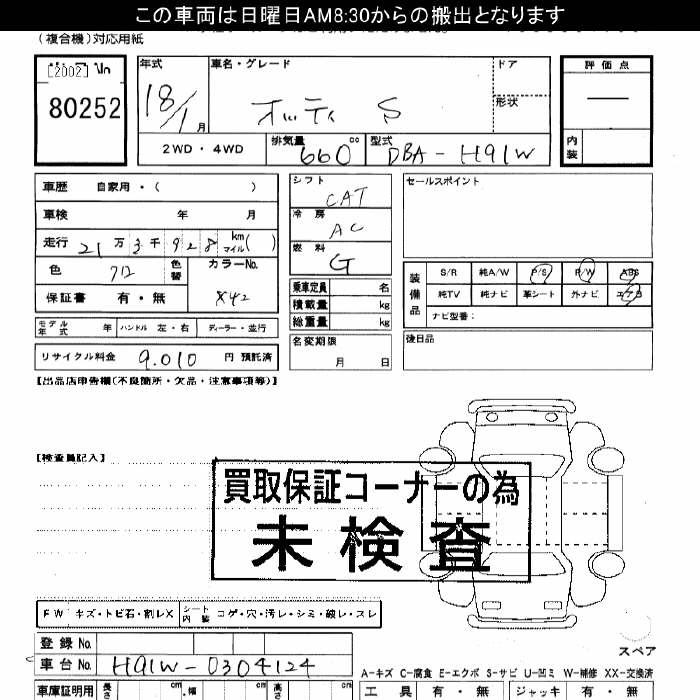 この車両は日曜日AM8:30からの搬出となります
(複合機)対応用紙
[2002]
80252
年式
18/1月
車名・グレード
オッティ S
ドア
形状
評価点
内装
2WD・4WD
排気量
660cc
型式
DBA-H91W
車歴 自家用・( )
車検 年 月
走行 21万3千928 km マイル( )
色
色替
カラーNo.
X42
保証書 有・無
シフト
CAT
冷房
AC
燃料
G
乗車定員 名
積載量 kg
総重量 kg
名変期限
月 日
セールスポイント
装備品
S/R 純A/W P/S P/W ABS
純TV 純ナビ 革シート 外ナビ エアB
ナビ型番:
後日品
モデル年式 年 ハンドル 左・右 ディーラー・並行
リサイクル料金 9,010 円 預託済
【出品店申告欄(不良箇所・欠品・注意事項等)】
【検査員記入】
買取保証コーナーの為
未検査
FW キズ・トビ石・割レX シート内装 コゲ・穴・汚レ・シミ・破レ・スレ
登録No.
車台No. H91W-0304124
車庫証明用 長さ cm ・幅 cm 高さ cm
スペア
A-キズ C-腐食 E-エクボ S-サビ U-凹ミ W-補修 XX-交換済
工具 有・無 ジャッキ 有・無